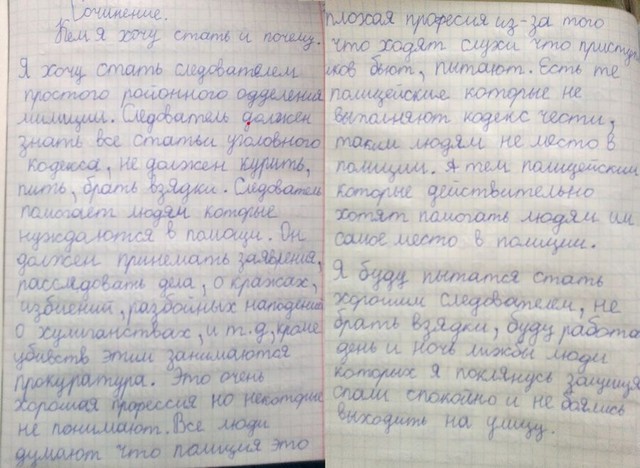 Сочинение.
Кем я хочу стать и почему.
Я хочу стать следователем
простого районного одделения
милиции. Следователь должен
знать все статьи уголовного
кодекса, не должен курить,
пить, брать взядки. Следователь
помогает людям которые
нуждаются в помощи. Он
должен принемать заявления,
расследовать дела, о кражах,
избиений, разбойных нападений
о хулиганствах, и т.д, кроме
убийств этим занимаются
прокуратура. Это очень
хорошая профессия но некоторые
не понимают. Все люди
думают что полиция это
плохая професия из-за того
что ходят слухи что приступ
ков бьют, пытают. Есть те
полицейские которые не
выполняют кодекс чести,
таким людям не место в
полиции. А тем полицейским
которые действительно
хотят помогать людям им
самое место в полиции.
Я буду пытатся стать
хорошим следователем, не
брать взядки, буду работа
день и ночь лижбы люди
которых я поклянусь защища
спали спокойно и не боялись
выходить на улицу.